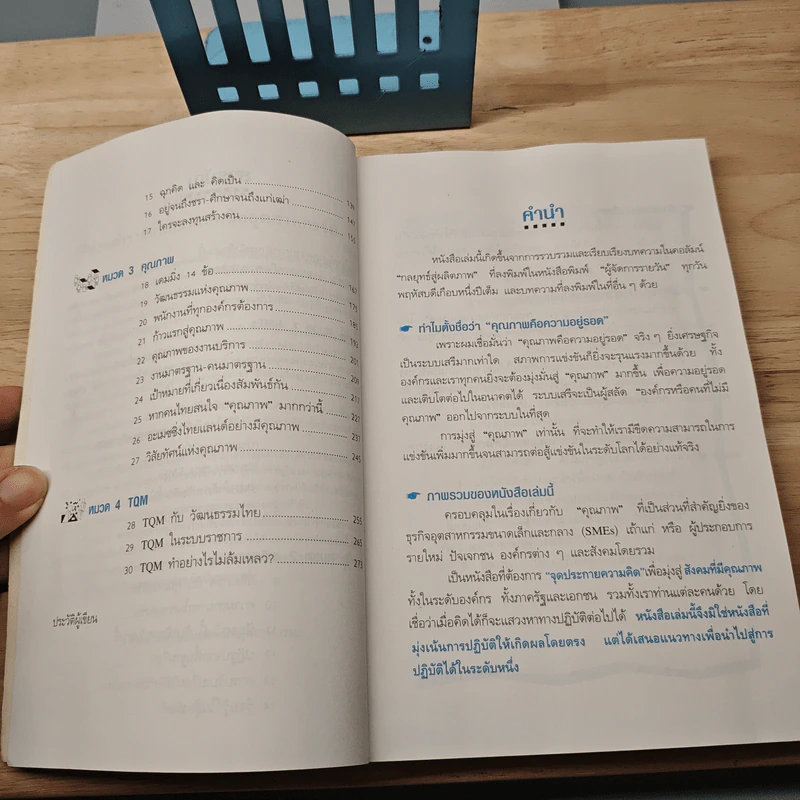 15 ฉุกคิด และ คิดเป็น
16 อยู่จนถึงชรา-ศึกษาจนถึงแก่เฒ่า 147
17 ใครจะลงทุนสร้างคน 155
หมวด 3 คุณภาพ
18 เดมมิ่ง 14 ข้อ 167
19 วัฒนธรรมแห่งคุณภาพ 175
20 พนักงานที่ทุกองค์กรต้องการ 185
21 ก้าวแรกสู่คุณภาพ 193
22 คุณภาพของงานบริการ 201
23 งานมาตรฐาน-คนมาตรฐาน 209
24 เป้าหมายที่เกี่ยวเนื่องสัมพันธ์กัน 217
25 หากคนไทยสนใจ "คุณภาพ" มากกว่านี้ 227
26 อะเมซซิ่งไทยแลนด์อย่างมีคุณภาพ 237
27 วิสัยทัศน์แห่งคุณภาพ 245
หมวด 4 TQM
28 TQM กับ วัฒนธรรมไทย 255
29 TQM ในระบบราชการ 265
30 TQM ทำอย่างไรไม่ล้มเหลว? 273
ประวัติผู้เขียน
คำนำ
หนังสือเล่มนี้เกิดขึ้นจากการรวบรวมและเรียบเรียงบทความในคอลัมน์
"กลยุทธ์สู่ผลิตภาพ" ที่ลงพิมพ์ในหนังสือพิมพ์ "ผู้จัดการรายวัน" ทุกวัน
พฤหัสบดีเกือบหนึ่งปีเต็ม และบทความที่ลงพิมพ์ในที่อื่น ๆ ด้วย
ทำไมตั้งชื่อว่า "คุณภาพคือความอยู่รอด"
เพราะผมเชื่อมั่นว่า "คุณภาพคือความอยู่รอด" จริงๆ ยิ่งเศรษฐกิจ
เป็นระบบเสรีมากเท่าใด สภาพการแข่งขันก็ยิ่งจะรุนแรงมากขึ้นด้วย ทั้ง
องค์กรและเราทุกคนยิ่งจะต้องมุ่งมั่นสู่ "คุณภาพ" มากขึ้น เพื่อความอยู่รอด
และเติบโตต่อไปในอนาคตได้ ระบบเสรีจะเป็นผู้สลัด "องค์กรหรือคนที่ไม่มี
คุณภาพ" ออกไปจากระบบในที่สุด
การมุ่งสู่ "คุณภาพ" เท่านั้น ที่จะทำให้เรามีขีดความสามารถในการ
แข่งขันเพิ่มมากขึ้นจนสามารถต่อสู้แข่งขันในระดับโลกได้อย่างแท้จริง
ภาพรวมของหนังสือเล่มนี้
ครอบคลุมในเรื่องเกี่ยวกับ "คุณภาพ" ที่เป็นส่วนที่สำคัญยิ่งของ
ธุรกิจอุตสาหกรรมขนาดเล็กและกลาง (SMEs) เถ้าแก่ หรือ ผู้ประกอบการ
รายใหม่ ปัจเจกชน องค์กรต่าง ๆ และสังคมโดยรวม
เป็นหนังสือที่ต้องการ "จุดประกายความคิด" เพื่อมุ่งสู่ สังคมที่มีคุณภาพ
ทั้งในระดับองค์กร ทั้งภาครัฐและเอกชน รวมทั้งเราท่านแต่ละคนด้วย โดย
เชื่อว่าเมื่อคิดได้ก็จะแสวงหาทางปฏิบัติต่อไปได้ หนังสือเล่มนี้จึงมิใช่หนังสือที่
มุ่งเน้นการปฏิบัติให้เกิดผลโดยตรง แต่ได้เสนอแนวทางเพื่อนำไปสู่การ
ปฏิบัติได้ในระดับหนึ่ง